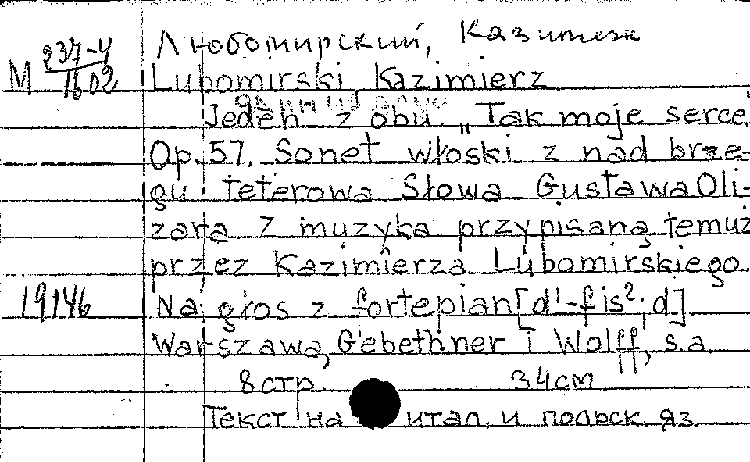 Любомирский, Казимеж
М 237-4/1602
Lubomirski, Kazimierz
Jeden z obu „Tak moje serce
Op. 57. Sonet włoski z nad brze-
gu teterowa Słowa Gustawa Oli-
zara z muzyką przypisaną temuż
przez Kazimierza Lubomirskiego
19146 Na głos z fortepian [d¹-fis²; d]
Warszawa, Gebethner i Wolff, s.a.
8 стр. 34 см
Текст на итал. и польск. яз.